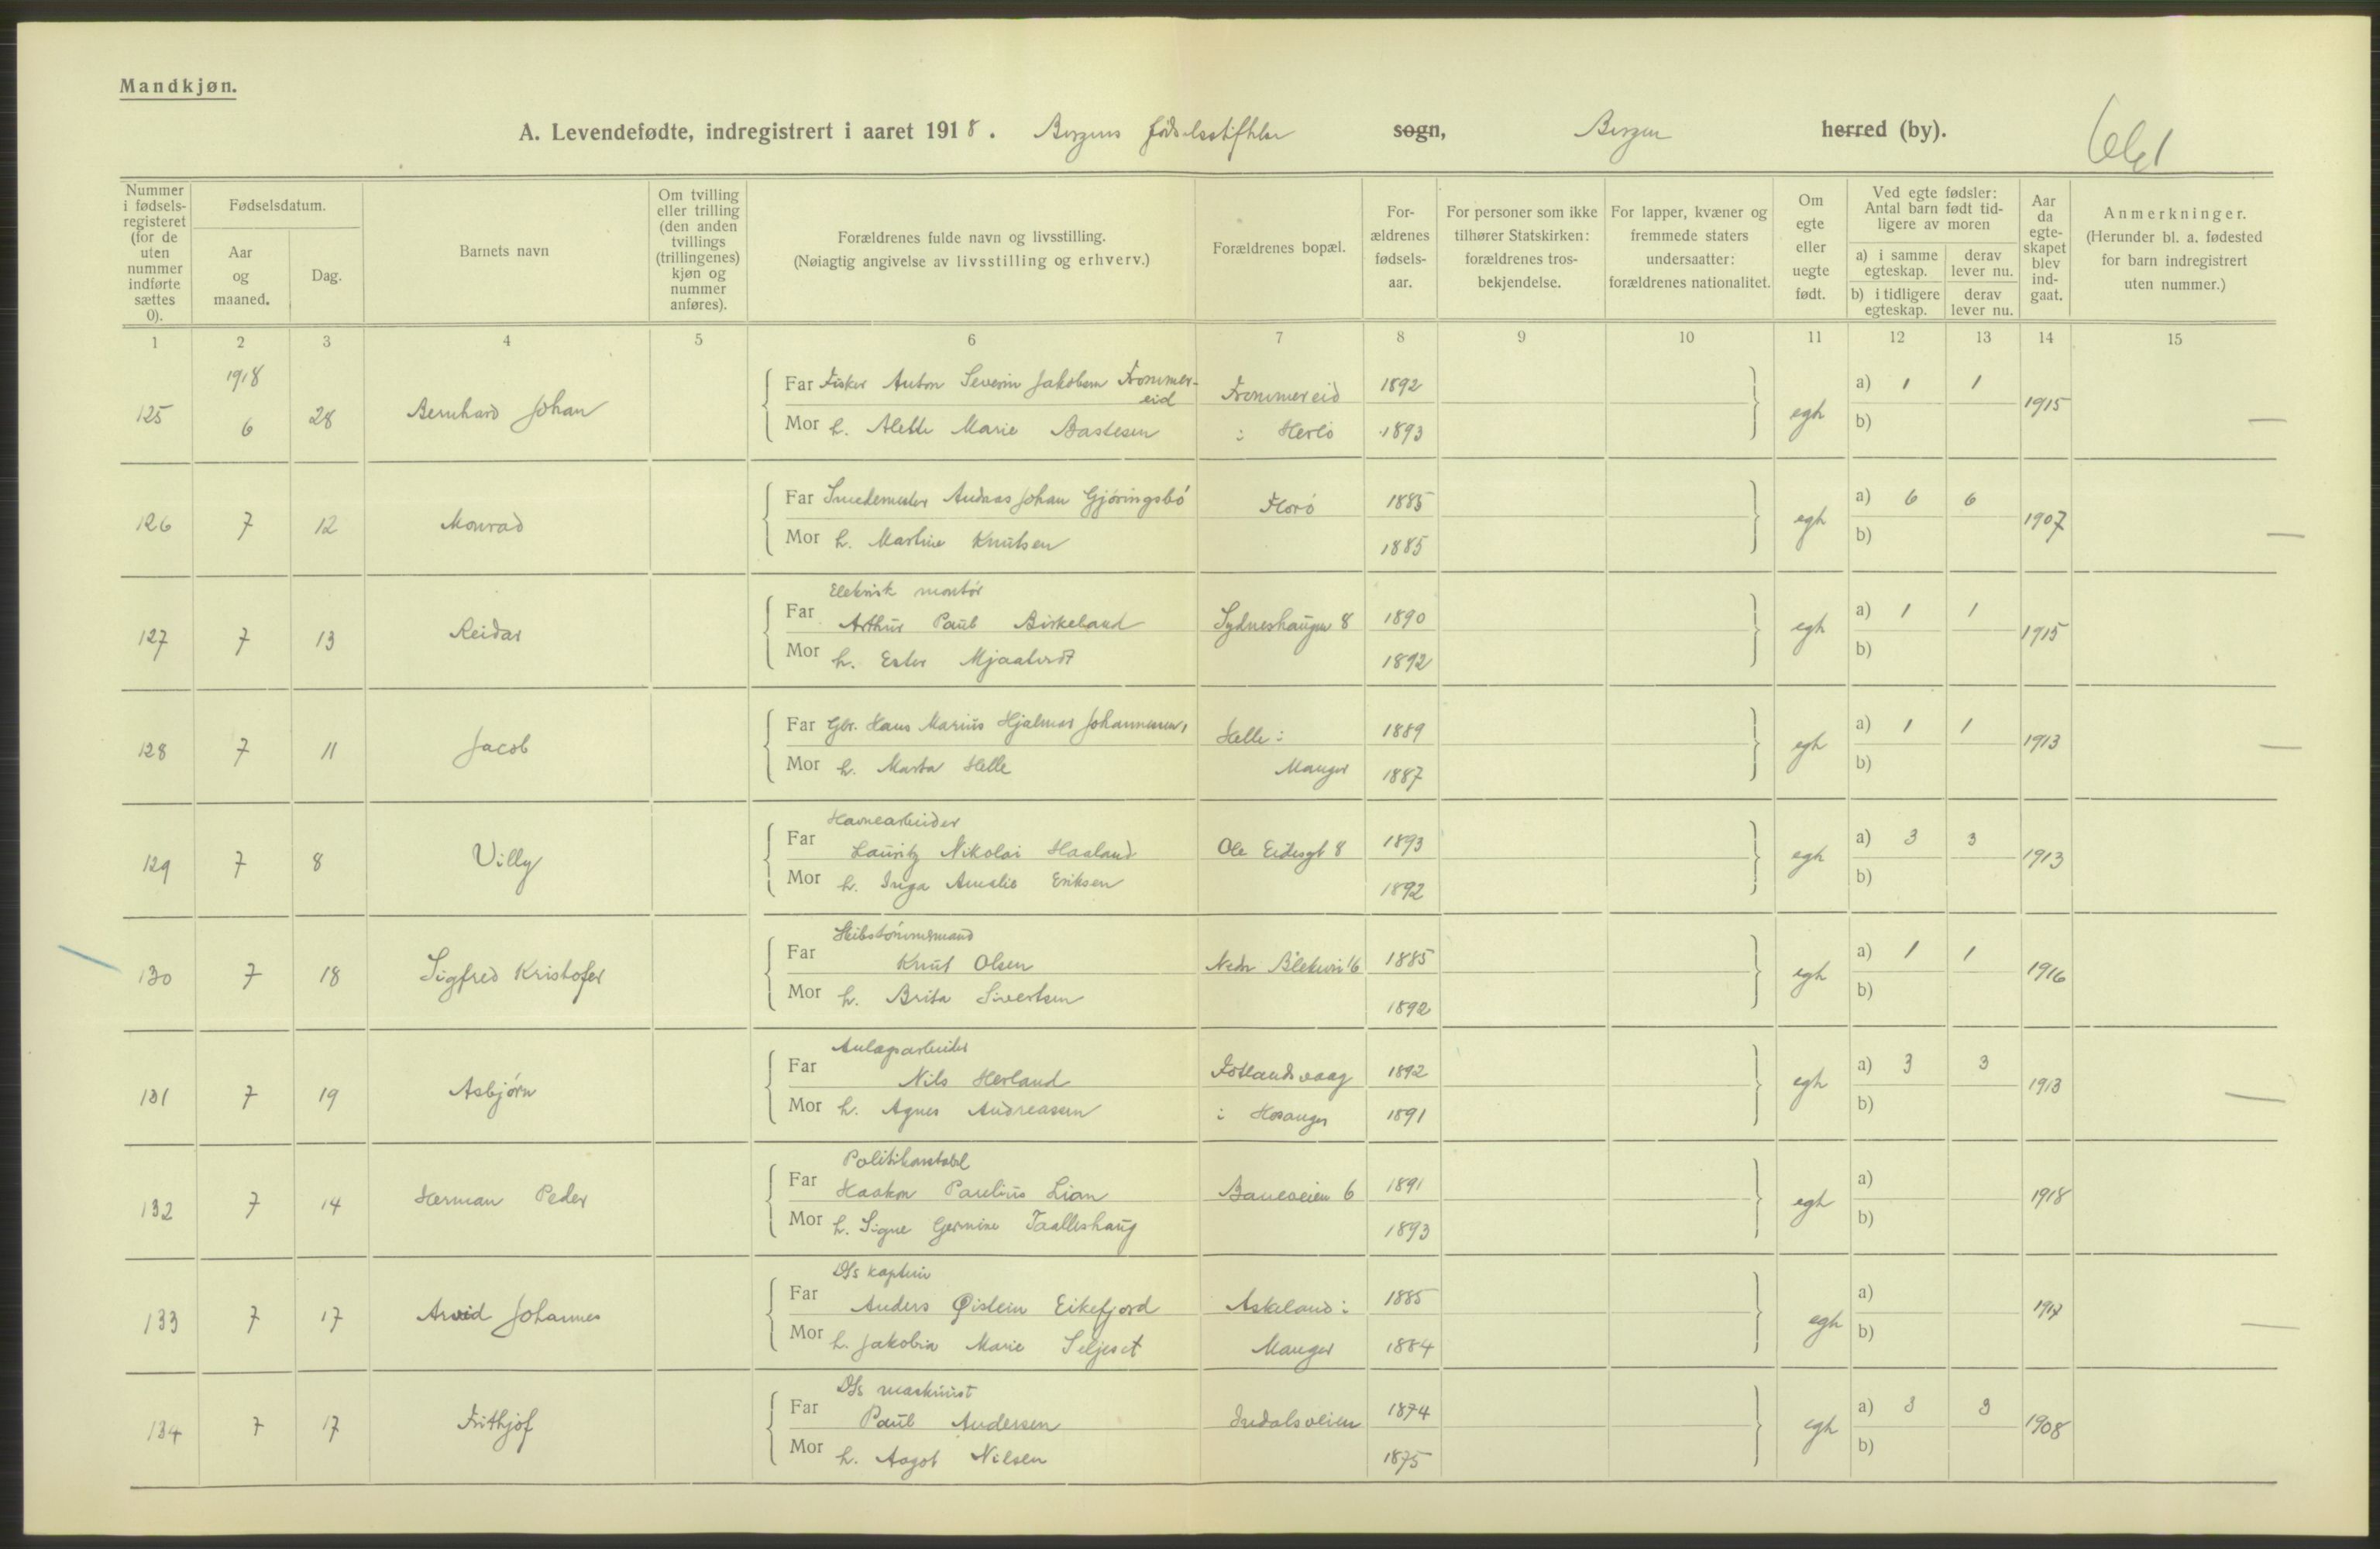 Mandkjøn.
A. Levendefødte, indregistrert i aaret 1918. Bergens fødselsstiftelse sogn, Bergen herred (by).
Nummer i fødsels-registeret (for de uten nummer indførte sættes 0).
Fødselsdatum.
Aar og maaned.
Dag.
Barnets navn
Om tvilling eller trilling (den anden tvillings (trillingenes) kjøn og nummer anføres).
Forældrenes fulde navn og livsstilling.
(Nøiagtig angivelse av livsstilling og erhverv.)
Forældrenes bopæl.
For-ældrenes fødsels-aar.
For personer som ikke tilhører Statskirken: forældrenes tros-bekjendelse.
For lapper, kvæner og fremmede staters undersaatter: forældrenes nationalitet.
Om egte eller uegte født.
Ved egte fødsler: Antal barn født tid-ligere av moren
a) i samme egteskap.
derav lever nu.
b) i tidligere egteskap.
derav lever nu.
Aar da egte-skapet blev ind-gaat.
Anmerkninger.
(Herunder bl. a. fødested for barn indregistrert uten nummer.)
1 2 3 4 5 6 7 8 9 10 11 12 13 14 15
1918
125 6 28 Bernhard Johan Far Fisker Anton Severin Jakobsen Frommer-eid Frommereid 1892 egte a) 1 1 1915 —
Mor h. Alette Marie Bastesen i Herlø 1893 b)
126 7 12 Monrad Far Smedemester Andreas Johan Gjøringsbø Florø 1885 egte a) 6 6 1907 —
Mor h. Martine Knutsen 1885 b)
Elektrisk montør
127 7 13 Reidar Far Arthur Paul Birkeland Sydneshaugen 8 1890 egte a) 1 1 1915
Mor h. Ester Mjaatvedt 1892 b)
128 7 11 Jacob Far Gbr. Hans Marius Hjalmar Johannessen, Helle i 1889 egte a) 1 1 1913 —
Mor h. Marta Helle Manger 1887 b)
Havnearbeider
129 7 8 Villy Far Lauritz Nikolai Haaland Ole Eidesgt 8 1893 egte a) 3 3 1913
Mor h. Inga Amalie Eriksen 1892 b)
Skibstømmermand
130 7 18 Sigfred Kristofer Far Knut Olsen Nedr Blekevei 16 1885 egte a) 1 1 1916
Mor h. Brita Sivertsen 1892 b)
Anlægsarbeider
131 7 19 Asbjørn Far Nils Herland Fotlandsvaag 1892 egte a) 3 3 1913 —
Mor h. Agnes Andreassen i Hosanger 1891 b)
Politikonstabel
132 7 14 Herman Peder Far Haakon Paulius Lian Baneveien 6 1891 egte a) 1918
Mor h. Signe Germine Taalleshaug 1893 b)
D/s kaptein
133 7 17 Arvid Johannes Far Anders Øistein Eikefjord Askeland i 1885 egte a) 1917 —
Mor h. Jakobia Marie Seljeset Manger 1884 b)
D/s maskinist
134 7 17 Frithjof Far Paul Andersen Indalsveien 1874 egte a) 3 3 1908
Mor h. Aagot Nilsen 1875 b)